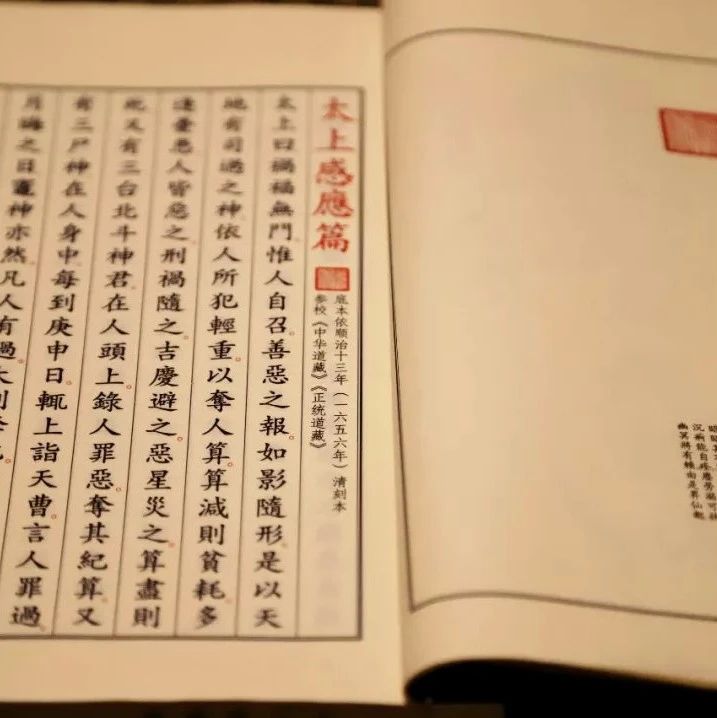 沉痾能自痊塵勞溺可扶
幽冥將有賴由是昇仙都
太上感應篇
底本依顺治十三年（一六五六年）清刻本
参校《中华道藏》《正统道藏》
太上曰禍福無門惟人自召。善惡之報。如影隨形。是以天
地有司過之神。依人所犯輕重。以奪人算。算減則貧耗。多
逢憂患人皆惡之。刑禍隨之。吉慶避之。惡星災之。算盡則
死又有三台北斗神君。在人頭上。錄人罪惡。奪其紀算。又
有三尸神在人身中。每到庚申日。輒上詣天曹言人罪過。
月晦之日竈神亦然。凡人有過。大則